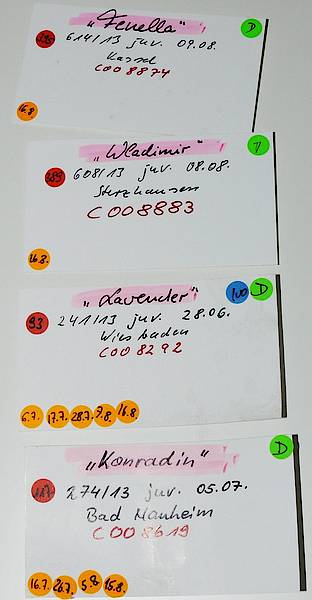 „Fenella“ D
614/13 juv. 09.08.
Kassel
C008874
16.8
„Wladimir“ D
289 608/13 juv. 08.08.
Sterzhausen
C008883
16.8.
„Lavender“ 100 D
93 241/13 juv. 28.06.
Wiesbaden
C008292
6.7. 17.7. 28.7. 7.8. 16.8
„Konradin“ D
274/13 juv. 05.07.
Bad Nauheim
C008619
16.7. 26.7. 5.8 15.8.